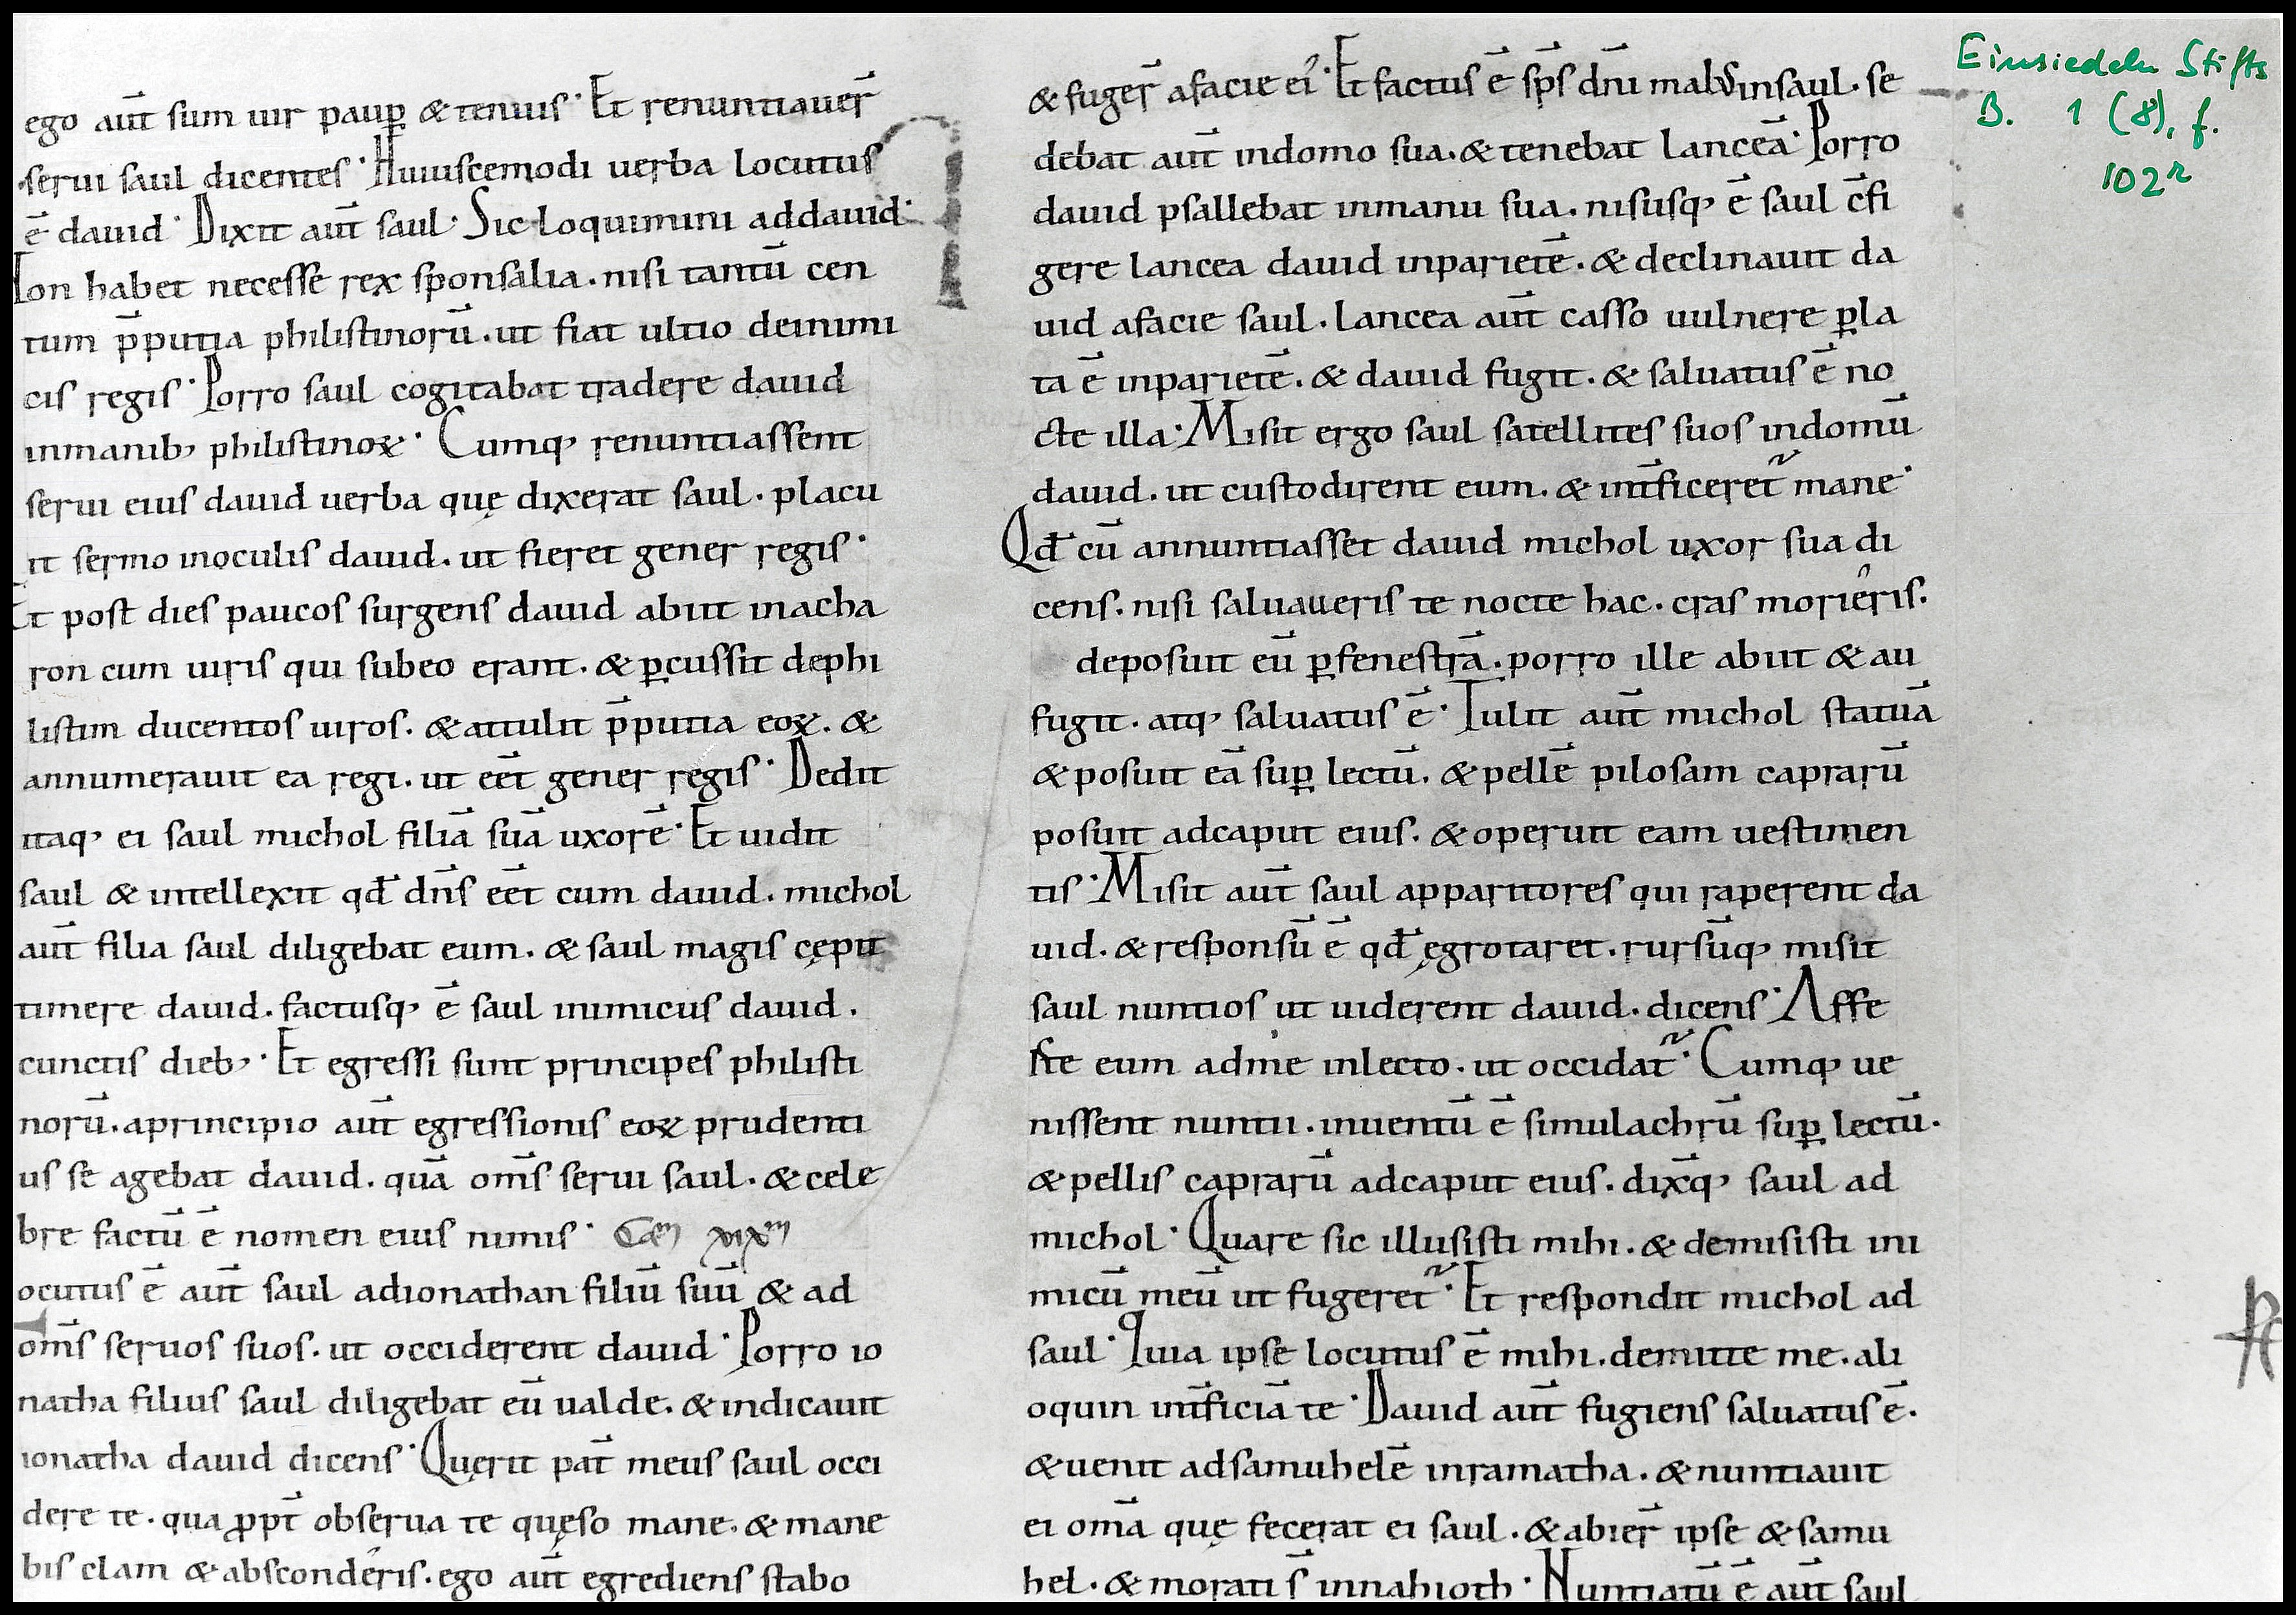 ego aut̄ sum uir paup̲ & tenuis· Et renuntiauer̄
serui saul dicentes· Huiuscemodi uerba locutus
ē dauid· Dixit aut̄ saul· Sic loquimini addauid·
Non habet necesse rex sponsalia. nisi tantū cen
tum p̄putia philistinorū. ut fiat ultio deinimi
cis regis· Porro saul cogitabat tradere dauid
inmanib; philistinoꝝ· Cumq; renuntiassent
serui eius dauid uerba quę dixerat saul. placu
it sermo inoculis dauid. ut fieret gener regis·
Et post dies paucos surgens dauid abiit inacha
ron cum uiris qui subeo erant. & ꝑcussit dephi
listim ducentos uiros. & attulit p̄putia eoꝝ. &
annumerauit ea regi. ut eēt gener regis· Dedit
itaq; ei saul michol filiā suā uxorē· Et uidit
saul & intellexit qd̄ dn̄s eēt cum dauid. michol
aut̄ filia saul diligebat eum. & saul magis cępit
timere dauid. factusq; ē saul inimicus dauid.
cunctis dieb;· Et egressi sunt principes philisti
norū. aprincipio aut̄ egressionis eoꝝ prudenti
us se agebat dauid. quā om̄s serui saul. & cele
bre factū ē nomen eius nimis·
ocutus ē aut̄ saul adionathan filiū suū & ad
om̄s seruos suos. ut occiderent dauid· Porro io
natha filius saul diligebat eū ualde. & indicauit
ionatha dauid dicens· Quęrit pat̄ meus saul occi
dere te. qua ꝓpt̄ obserua te quęso mane. & mane
bis clam & absconderis. ego aut̄ egrediens stabo
& fuger̄ afacie ei'· Et factus ē sp̄s dn̄i malus insaul. se
debat aut̄ indomo sua. & tenebat lanceā· Porro
dauid psallebat inmanu sua. nisusq; ē saul c̄fi
gere lancea dauid inparietē. & declinauit da
uid afacie saul. lancea aut̄ casso uulnere ꝑla
ta ē inparietē. & dauid fugit. & saluatus ē no
cte illa· Misit ergo saul satellites suos indomū
dauid. ut custodirent eum. & int̄ficeret̃ mane·
Qd̄ cū annuntiasset dauid michol uxor sua di
cens. nisi saluaueris te nocte hac. cras moriêris.
deposuit eū ꝑfenestrā. porro ille abiit & au
fugit. atq; saluatus ē· Tulit aut̄ michol statuā
& posuit eā suꝑ lectū. & pellē pilosam caprarū
posuit adcaput eius. & operuit eam uestimen
tis· Misit aut̄ saul apparitores qui raperent da
uid. & responsū ē qd̄ ęgrotaret. rursūq; misit
saul nuntios ut uiderent dauid. dicens· Affe
rte eum adme inlecto. ut occidat̃· Cumq; ue
nissent nuntii. inuentū ē simulachrū suꝑ lectū.
& pellis caprarū adcaput eius. dix̄q; saul ad
michol· Quare sic illusisti mihi. & demisisti ini
micū meū ut fugeret̃· Et respondit michol ad
saul· Quia ipse locutus ē mihi. demitte me. ali
oquin int̄ficiā te· Dauid aut̄ fugiens saluatus ē.
& uenit adsamuhelē inramatha. & nuntiauit
ei om̄a quę fecerat ei saul. & abier̄ ipse & samu
hel. & morati s̄ innahioth· Nuntiatū ē aut̄ saul
Einsiedeln Stifts
B. 1 (8), f.
102r